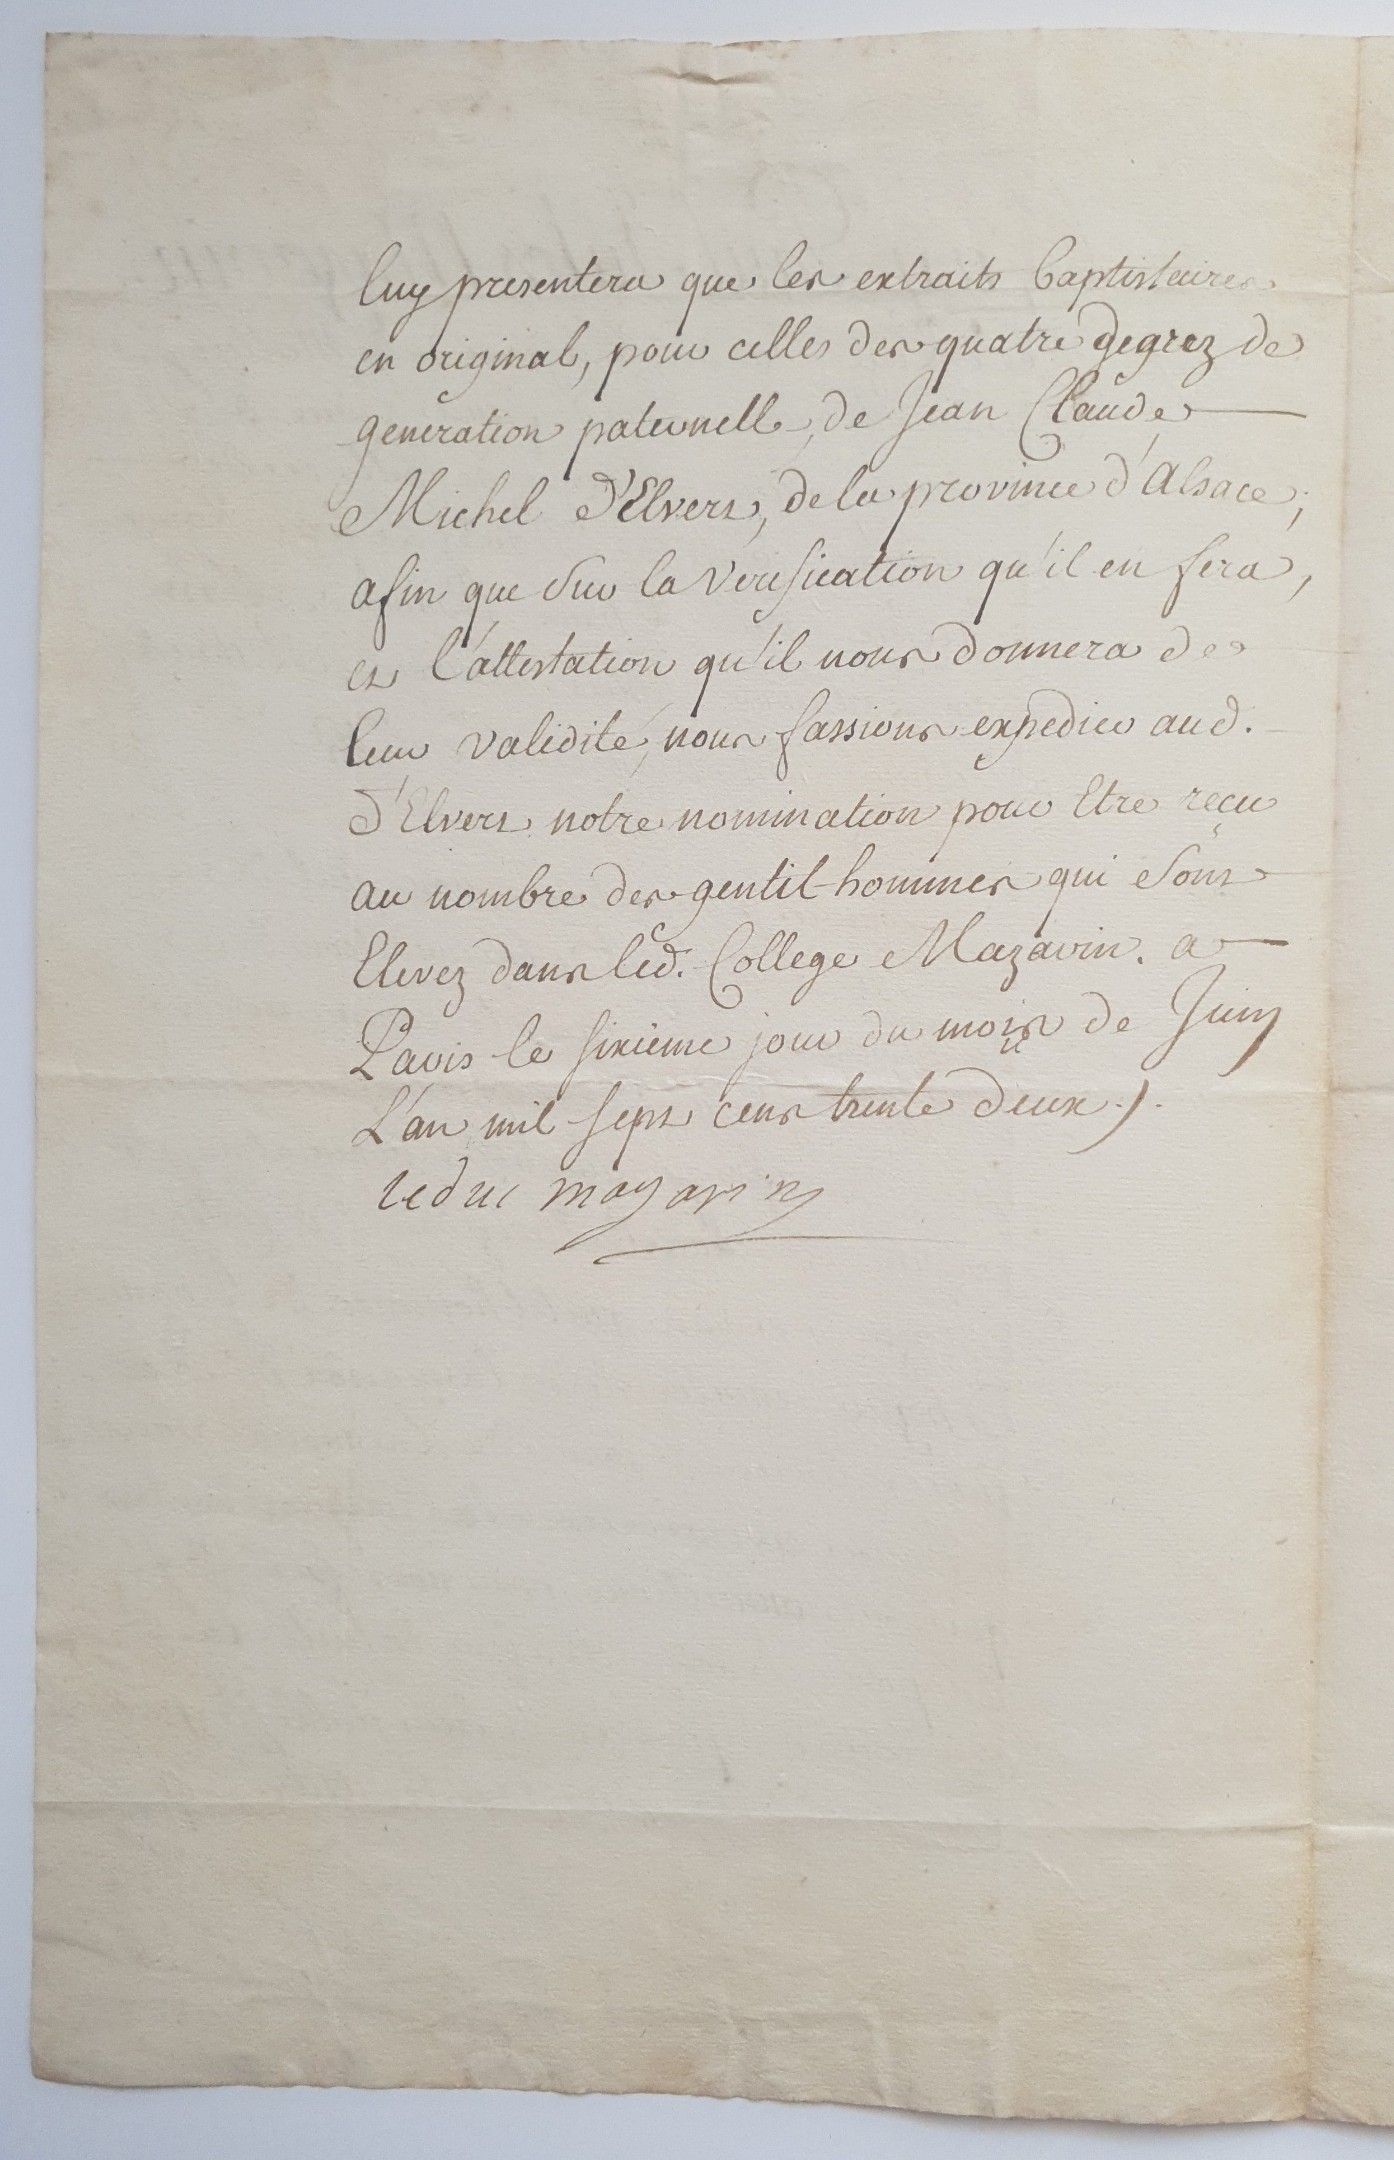 luy presentera que les extraits baptistaires
en original, pour celles des quatre degrez de
generation paternelle, de Jean Claude
Michel d'Elvert, de la province d'Alsace;
afin que sur la verification qu'il en fera,
et l'attestation qu'il nous donnera de
leur validité, nous fassions expedier aud.
d'Elvert notre nomination pour Etre reçu
au nombre des gentil-hommes qui sont
Elevez dans led. College Mazarin. a
Paris le sixieme jour du mois de Juin
L'an mil sept cens trente deux ./.
le duc mazarin